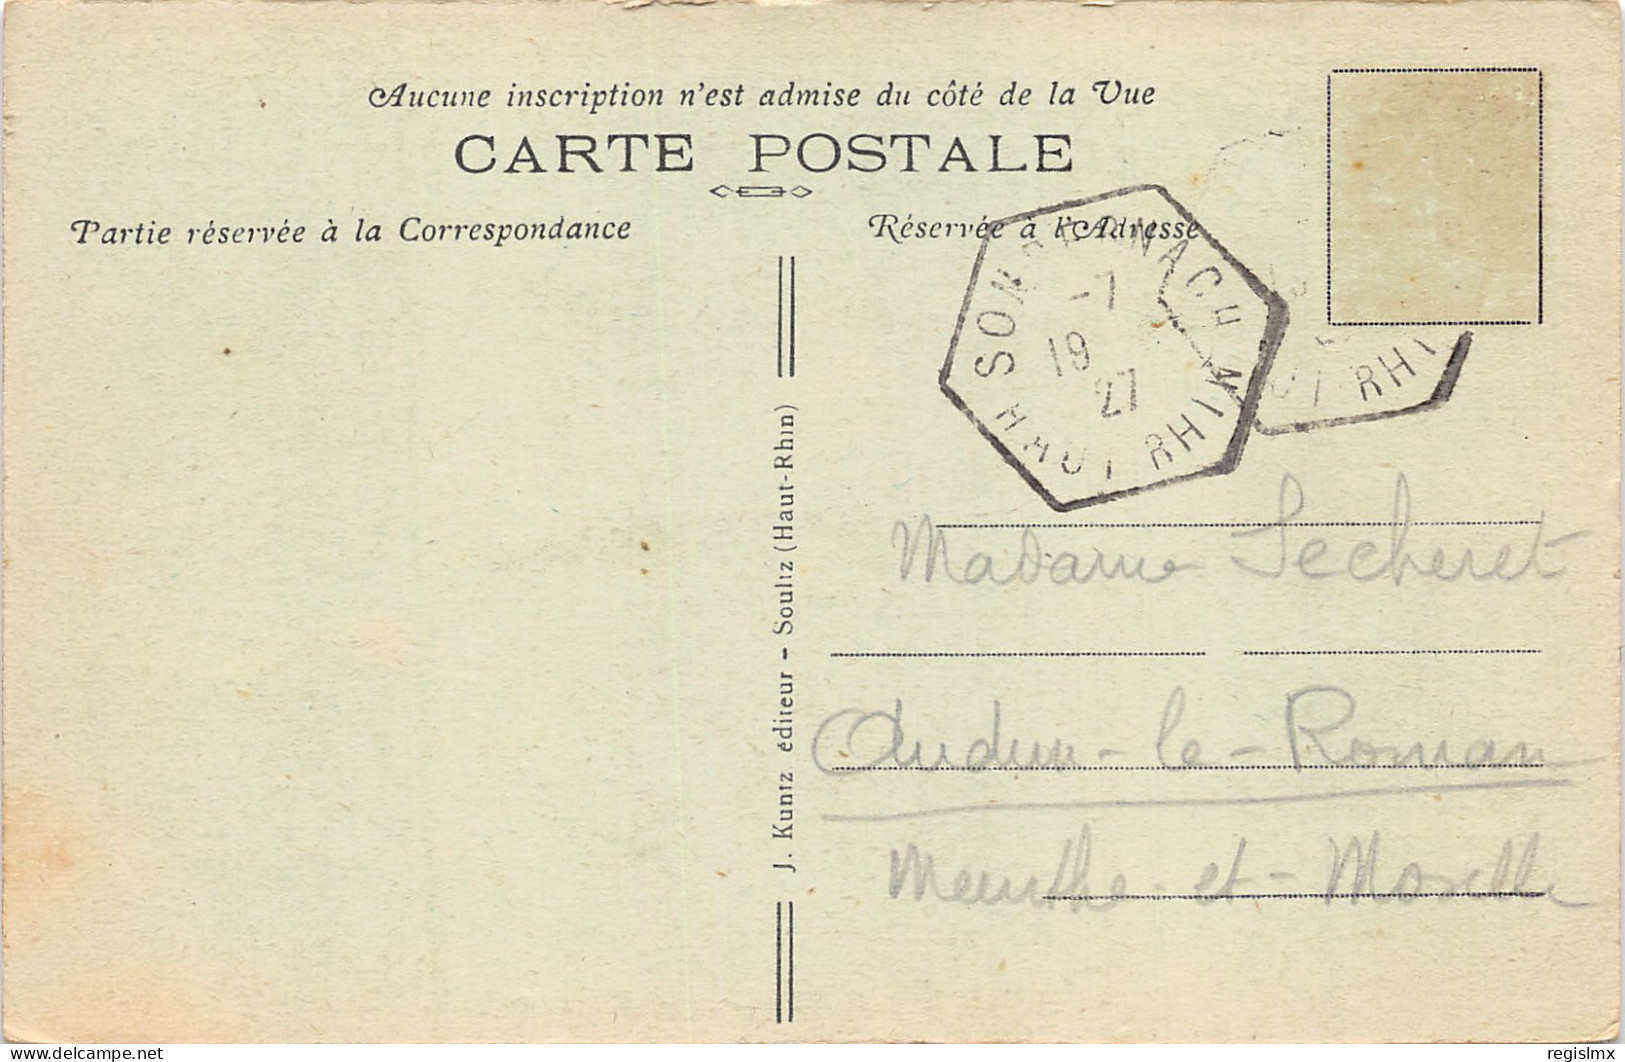 Aucune inscription n'est admise du côté de la Vue
CARTE POSTALE
Partie réservée à la Correspondance
Réservée à l'Adresse
SONDERNACH
-7
19
27
HAUT RHIN
UT RHI
J. Kuntz éditeur - Soultz (Haut-Rhin)
Madame Secheret
Audun-le-Roman
Meurthe-et-Moselle
delcampe.net
regislmx